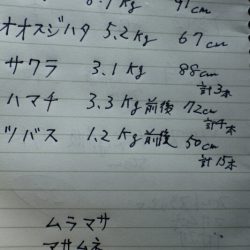 8.1 Kg 91cm
オオスジハタ 5.2 Kg 67cm
サクラ 3.1 Kg 88cm
計3本
ハマチ 3.3 Kg前後 72cm
計4本
ツバス 1.2 Kg前後 50cm
計15本
ムラマサ
マサムネ